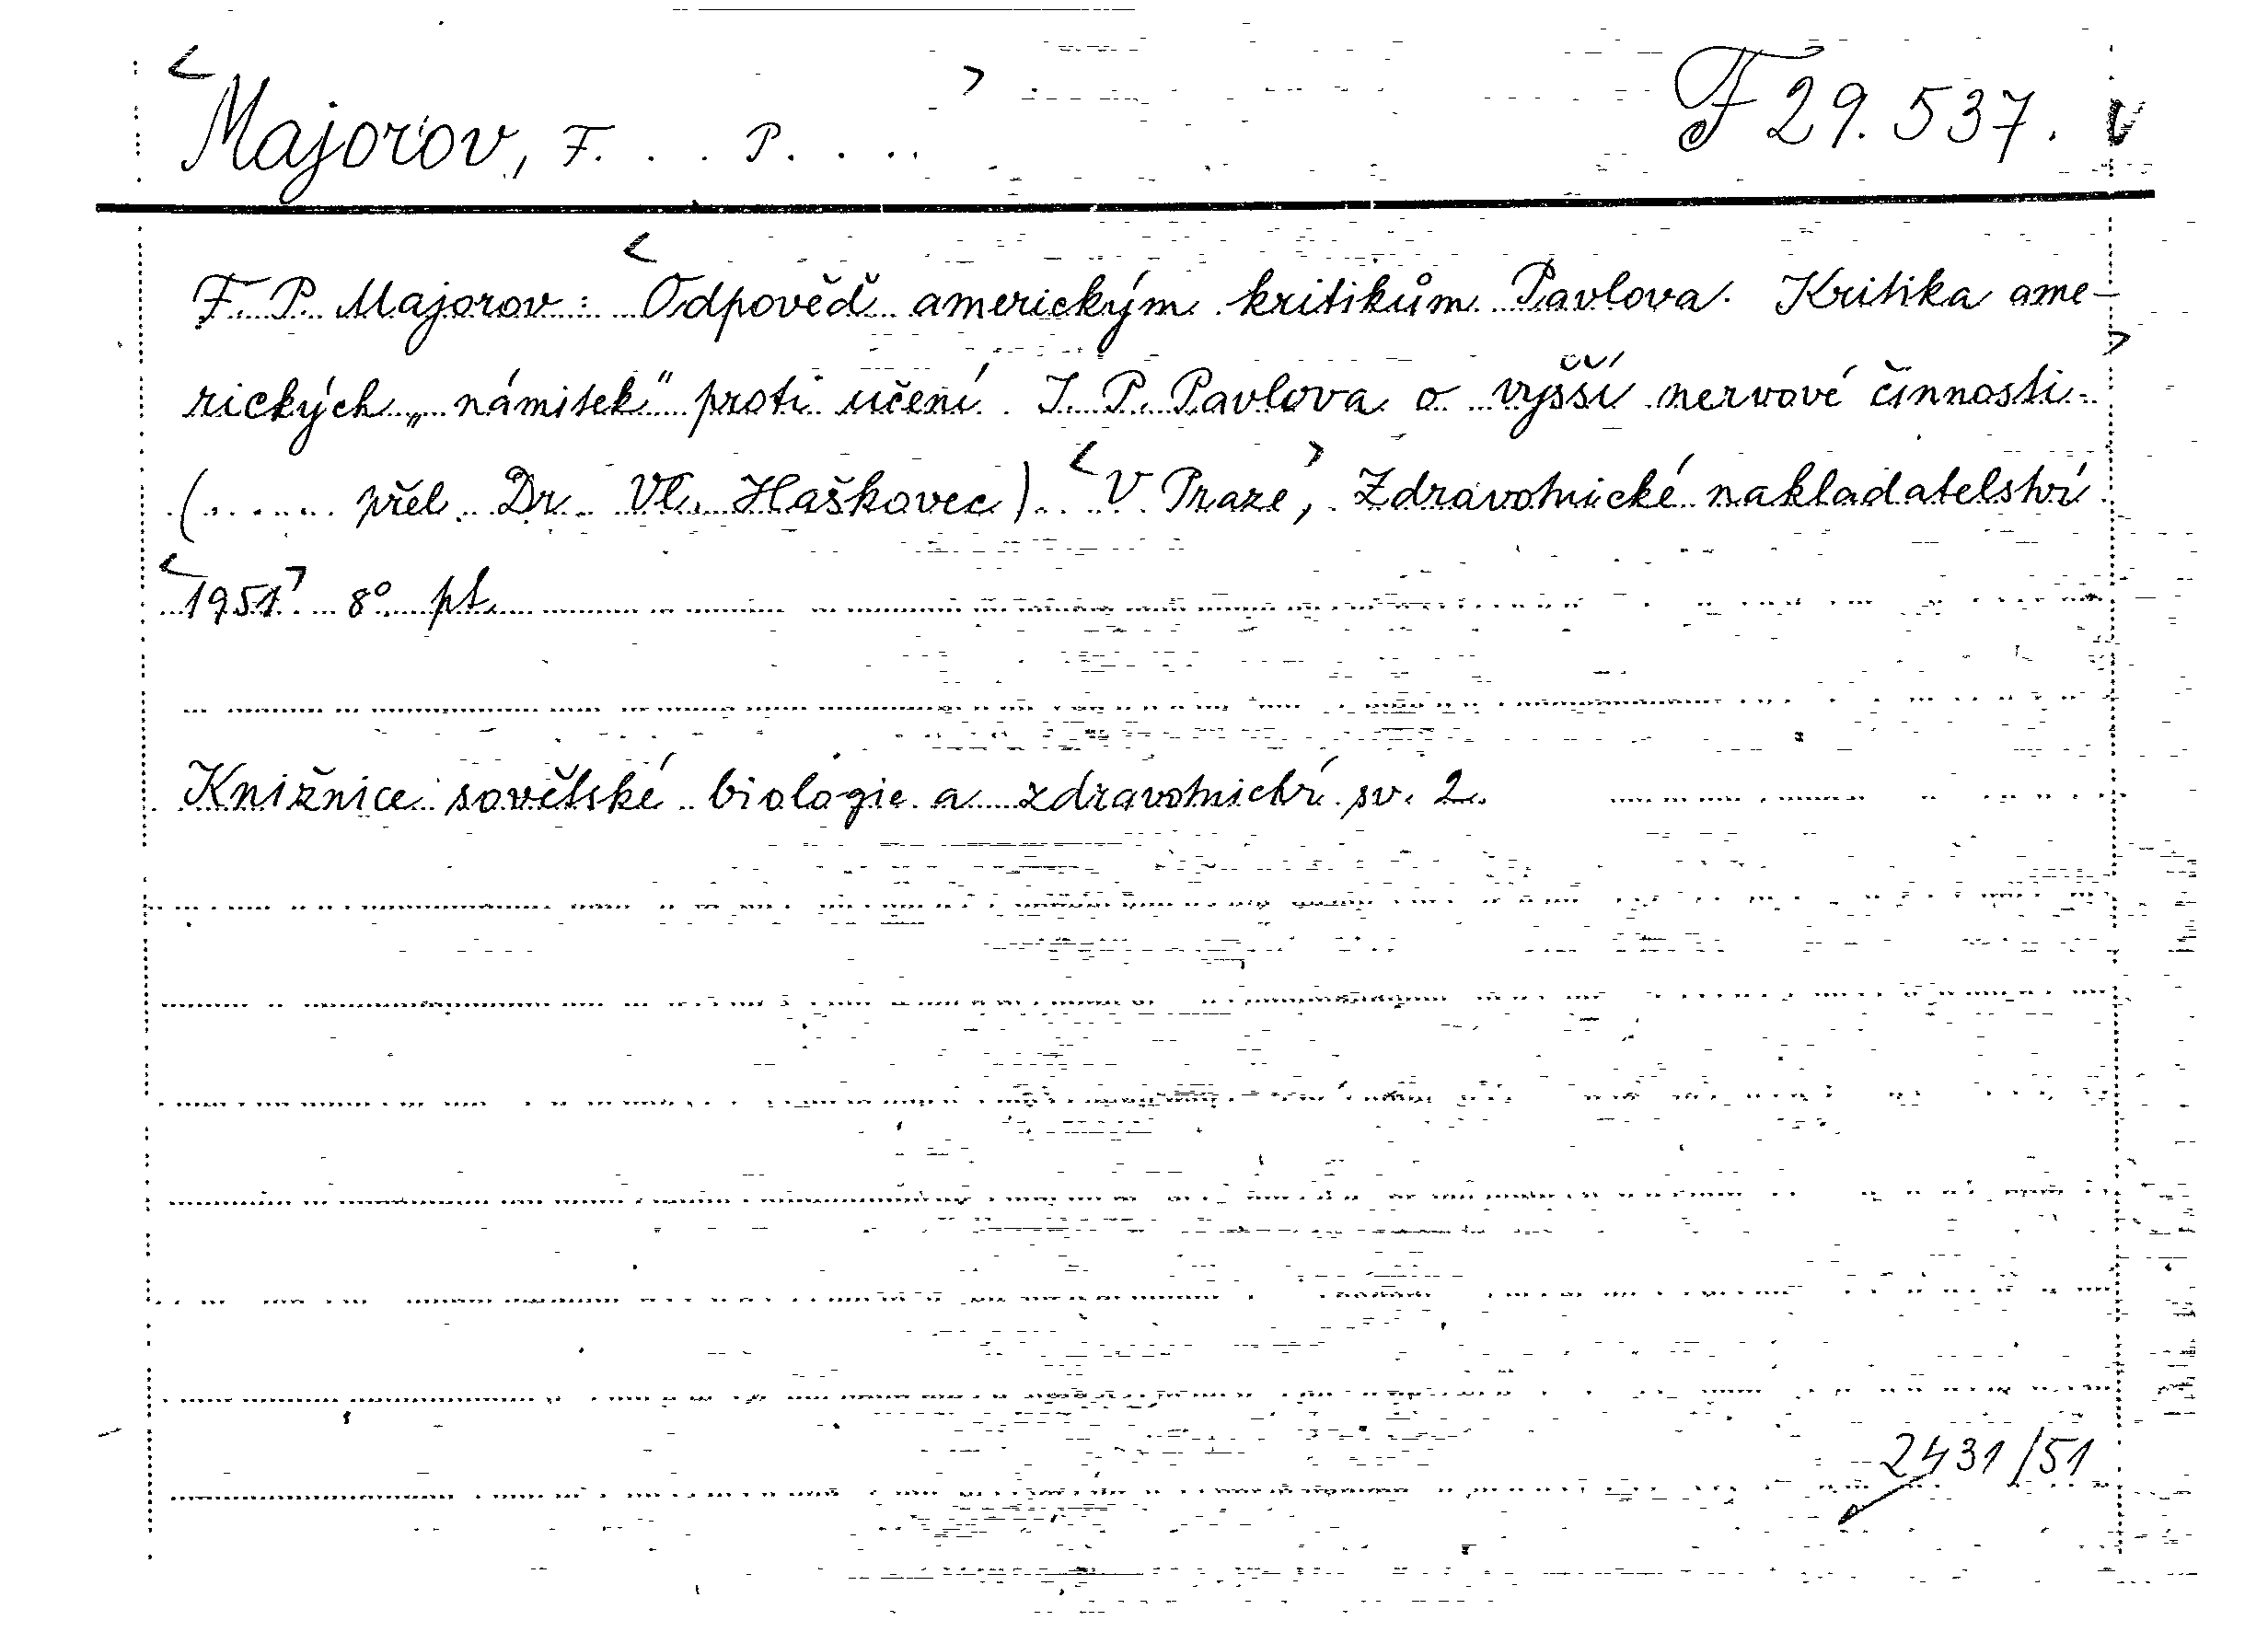 <Majorov, F. . . P. . . . .> F 29.537. v
F. P. Majorov: <Odpověď americkým kritikům Pavlova. Kritika ame-
rických „námitek“ proti učení I. P. Pavlova o vyšší nervové činnosti.>
(...... přel. Dr. Vl. Haškovec). <V Praze,> Zdravotnické nakladatelství
<1951>. 8° pt.
Knižnice sovětské biologie a zdravotnictví sv. 2.
2431/51